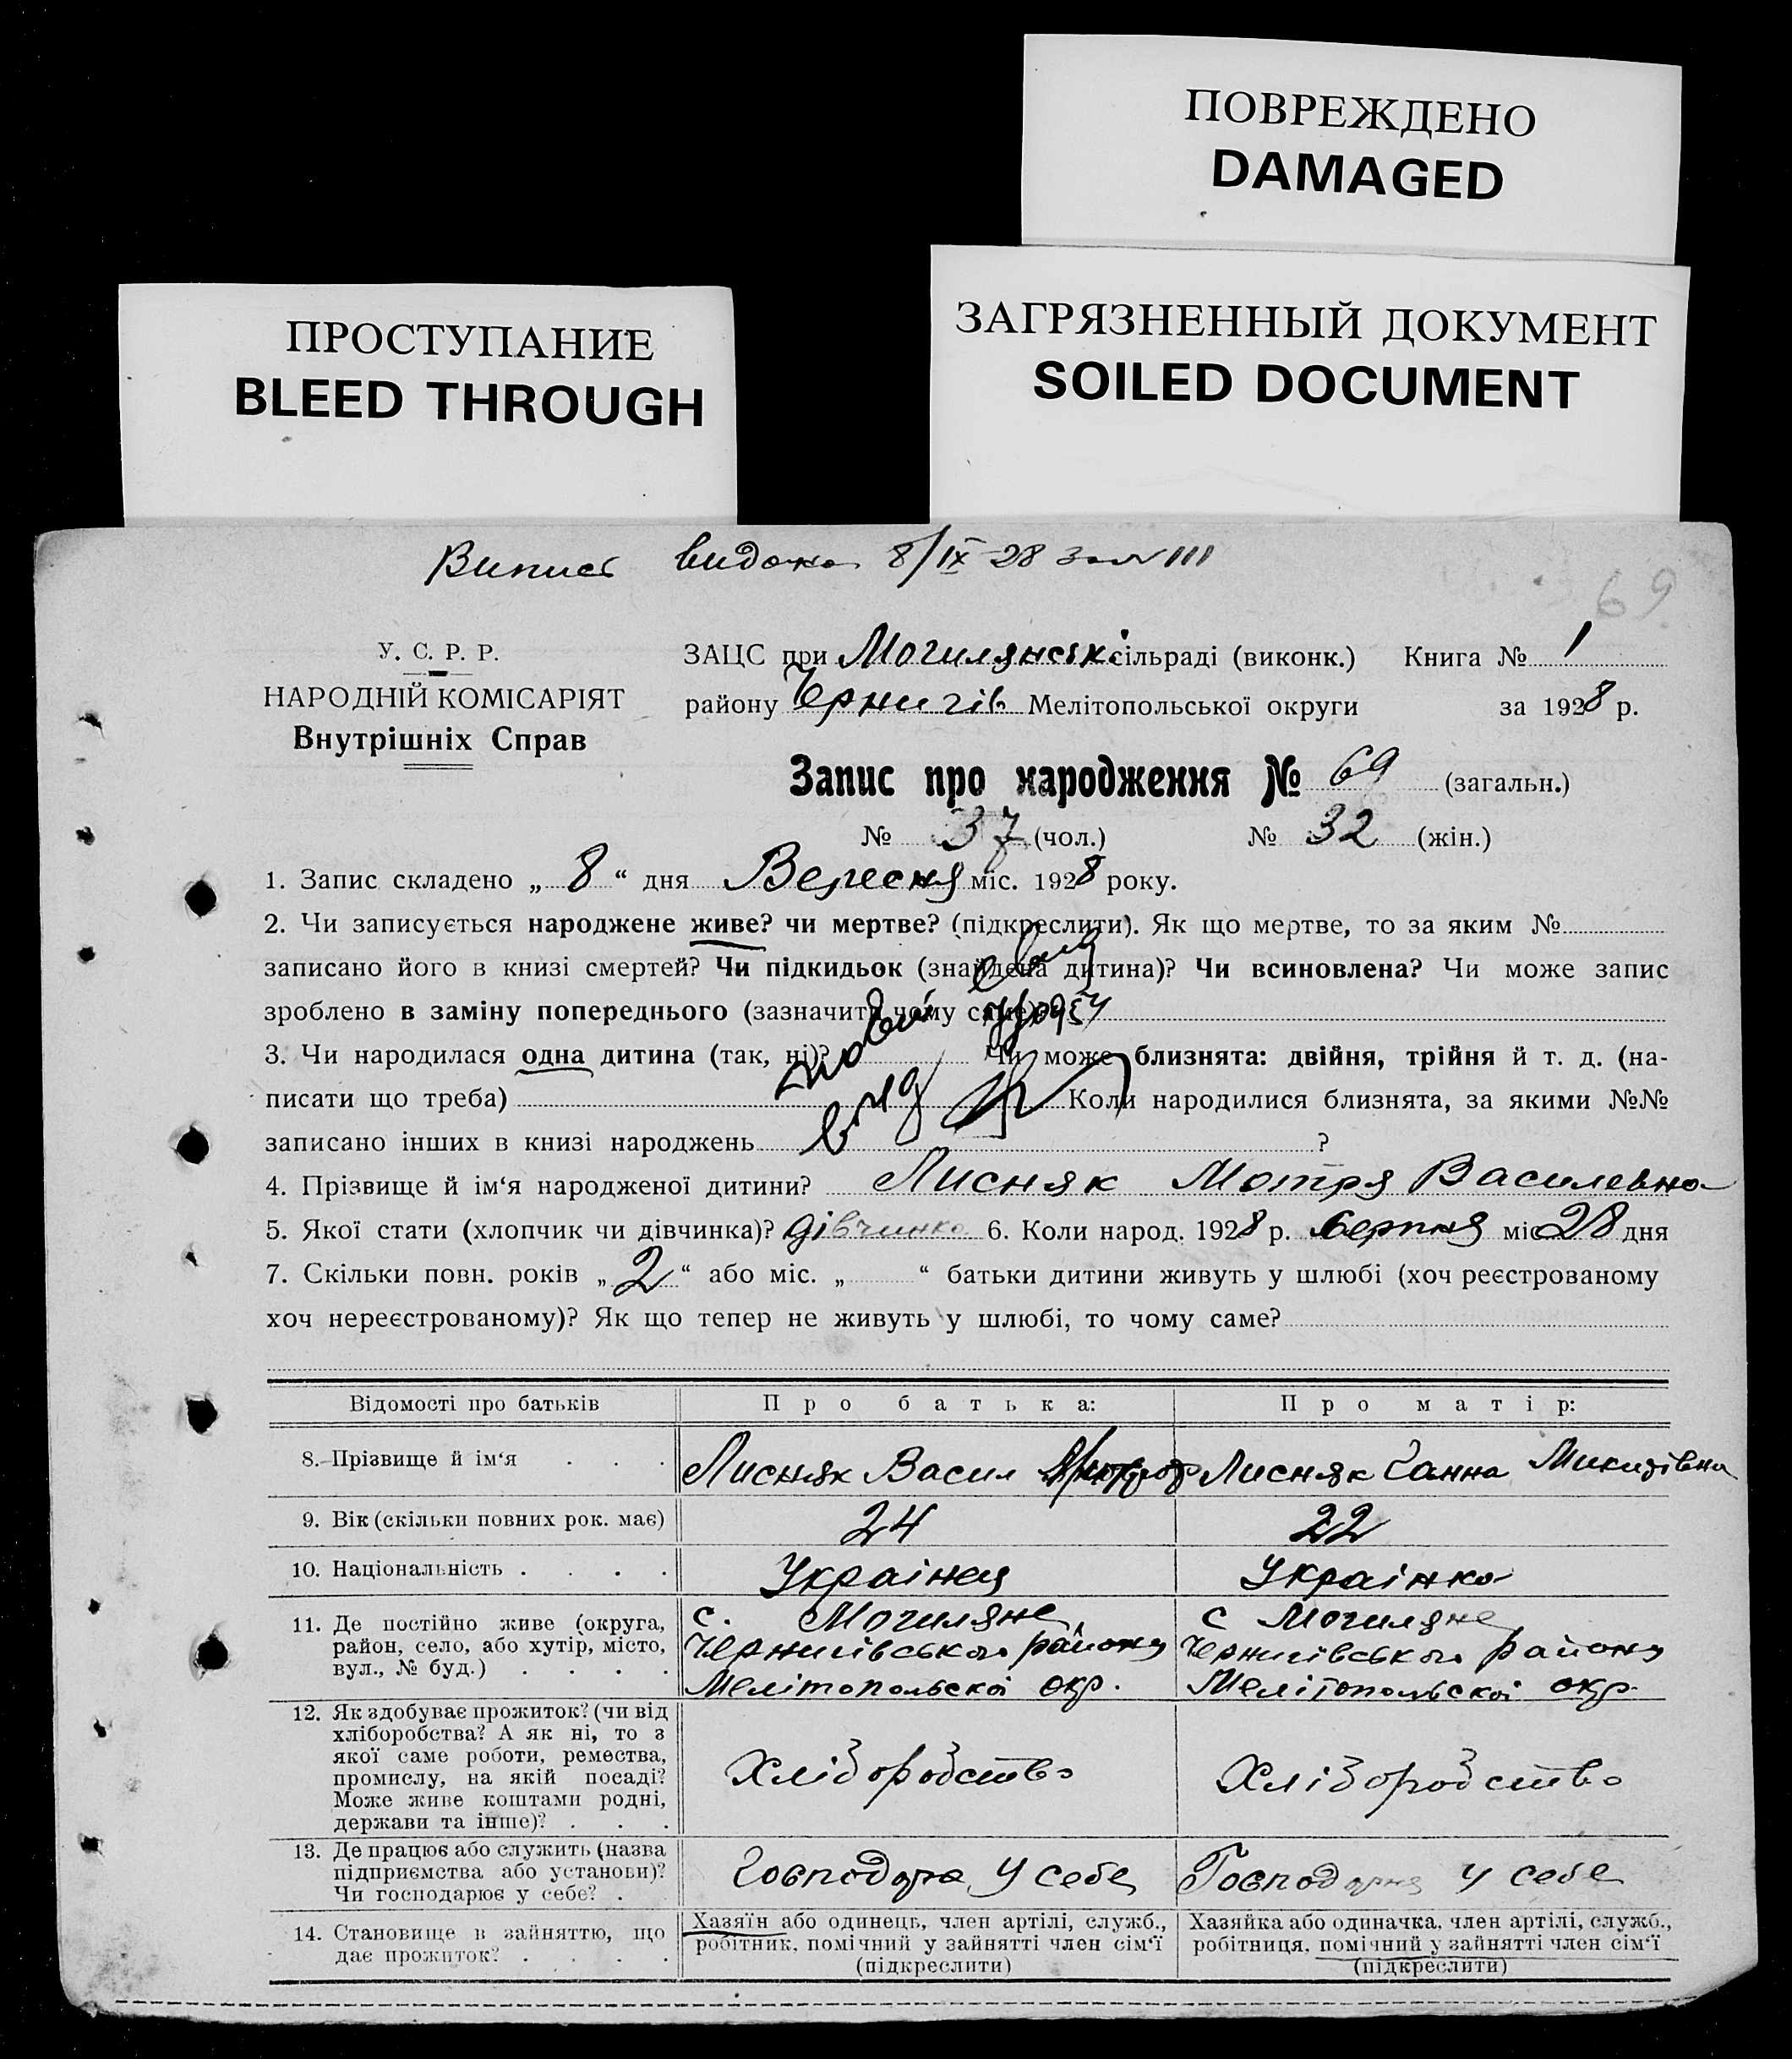 ПОВРЕЖДЕНО
DAMAGED
ПРОСТУПАНИЕ
BLEED THROUGH
ЗАГРЯЗНЕННЫЙ ДОКУМЕНТ
SOILED DOCUMENT
Випись видана 8/IX-28 за № 111
69
У. С. Р. Р.
НАРОДНІЙ КОМІСАРІЯТ
Внутрішніх Справ
ЗАЦС при Могилянські сільраді (виконк.) Книга № 1
району Чернигів Мелітопольської округи за 1928 р.
Запис про народження № 69 (загальн.)
№ 37 (чол.) № 32 (жін.)
1. Запис складено „ 8 “ дня Вересня міс. 1928 року.
2. Чи записується народжене живе? чи мертве? (підкреслити). Як що мертве, то за яким №
записано його в книзі смертей? Чи підкидьок (знайдена дитина)? Чи всиновлена? Чи може запис
зроблено в заміну попереднього (зазначити чому саме)?
3. Чи народилася одна дитина (так, ні)? Чи може близнята: двійня, трійня й т. д. (на-
писати що треба) Коли народилися близнята, за якими №№
записано інших в книзі народжень ?
4. Прізвище й ім‘я народженої дитини? Лисняк Мотря Василевна
5. Якої стати (хлопчик чи дівчинка)? дівчинка 6. Коли народ. 1928 р. серпня міс 28 дня
7. Скільки повн. років „ 2 “ або міс. „ “ батьки дитини живуть у шлюбі (хоч реєстрованому
хоч нереєстрованому)? Як що тепер не живуть у шлюбі, то чому саме?
Відомості про батьків Про батька: Про матір:
8. Прізвище й ім‘я . . . Лисняк Васил Лисняк Ганна Микитівна
9. Вік (скільки повних рок. має) 24 22
10. Національність . . . . Украінец Украінка
11. Де постійно живе (округа, район, село, або хутір, місто, вул., № буд.) . . . .
с. Могиляне
Чернигівського району
Мелітопольскоі окр.
с Могиляне
Чернигівського району
Мелітопольскоі окр.
12. Як здобуває прожиток? (чи від
хліборобства? А як ні, то з
якої саме роботи, ремества,
промислу, на якій посаді?
Може живе коштами родні,
держави та інше)? . . .
Хліборобство Хліборобство
13. Де працює або служить (назва
підприємства або установи)?
Чи господарює у себе? .
Господарює у себе Господарює у себе
14. Становище в зайняттю, що
дає прожиток? . . . .
Хазяїн або одинець, член артілі, служб.,
робітник, помічний у зайнятті член сім‘ї
(підкреслити)
Хазяйка або одиначка, член артілі, служб.,
робітниця, помічний у зайнятті член сім‘ї
(підкреслити)